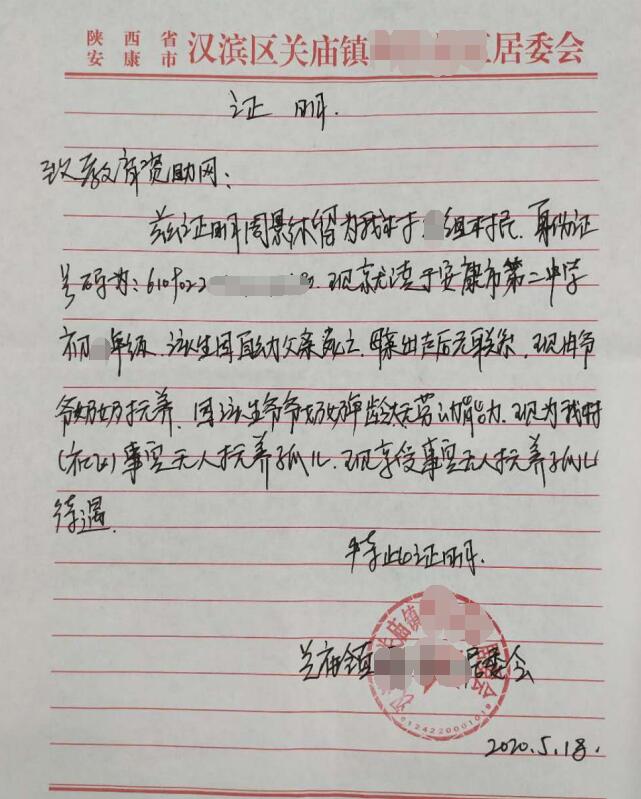 陕西省
安康市 汉滨区关庙镇 居委会
证 明.
致教育资助网:
兹证明周景休留为我村 组村民. 身份证
号码为: 6109022 . 现就读于安康市第二中学
初 年级. 该生因自幼父亲死亡. 母亲出走后无联系, 现由爷
爷奶奶抚养. 因该生爷爷奶奶年龄大无劳动能力. 现为我村
(社区) 事实无人抚养孤儿. 现享受事实无人抚养孤儿
待遇.
特此证明.
关庙镇 居委会
关庙镇
6124220001019
2020.5.18.